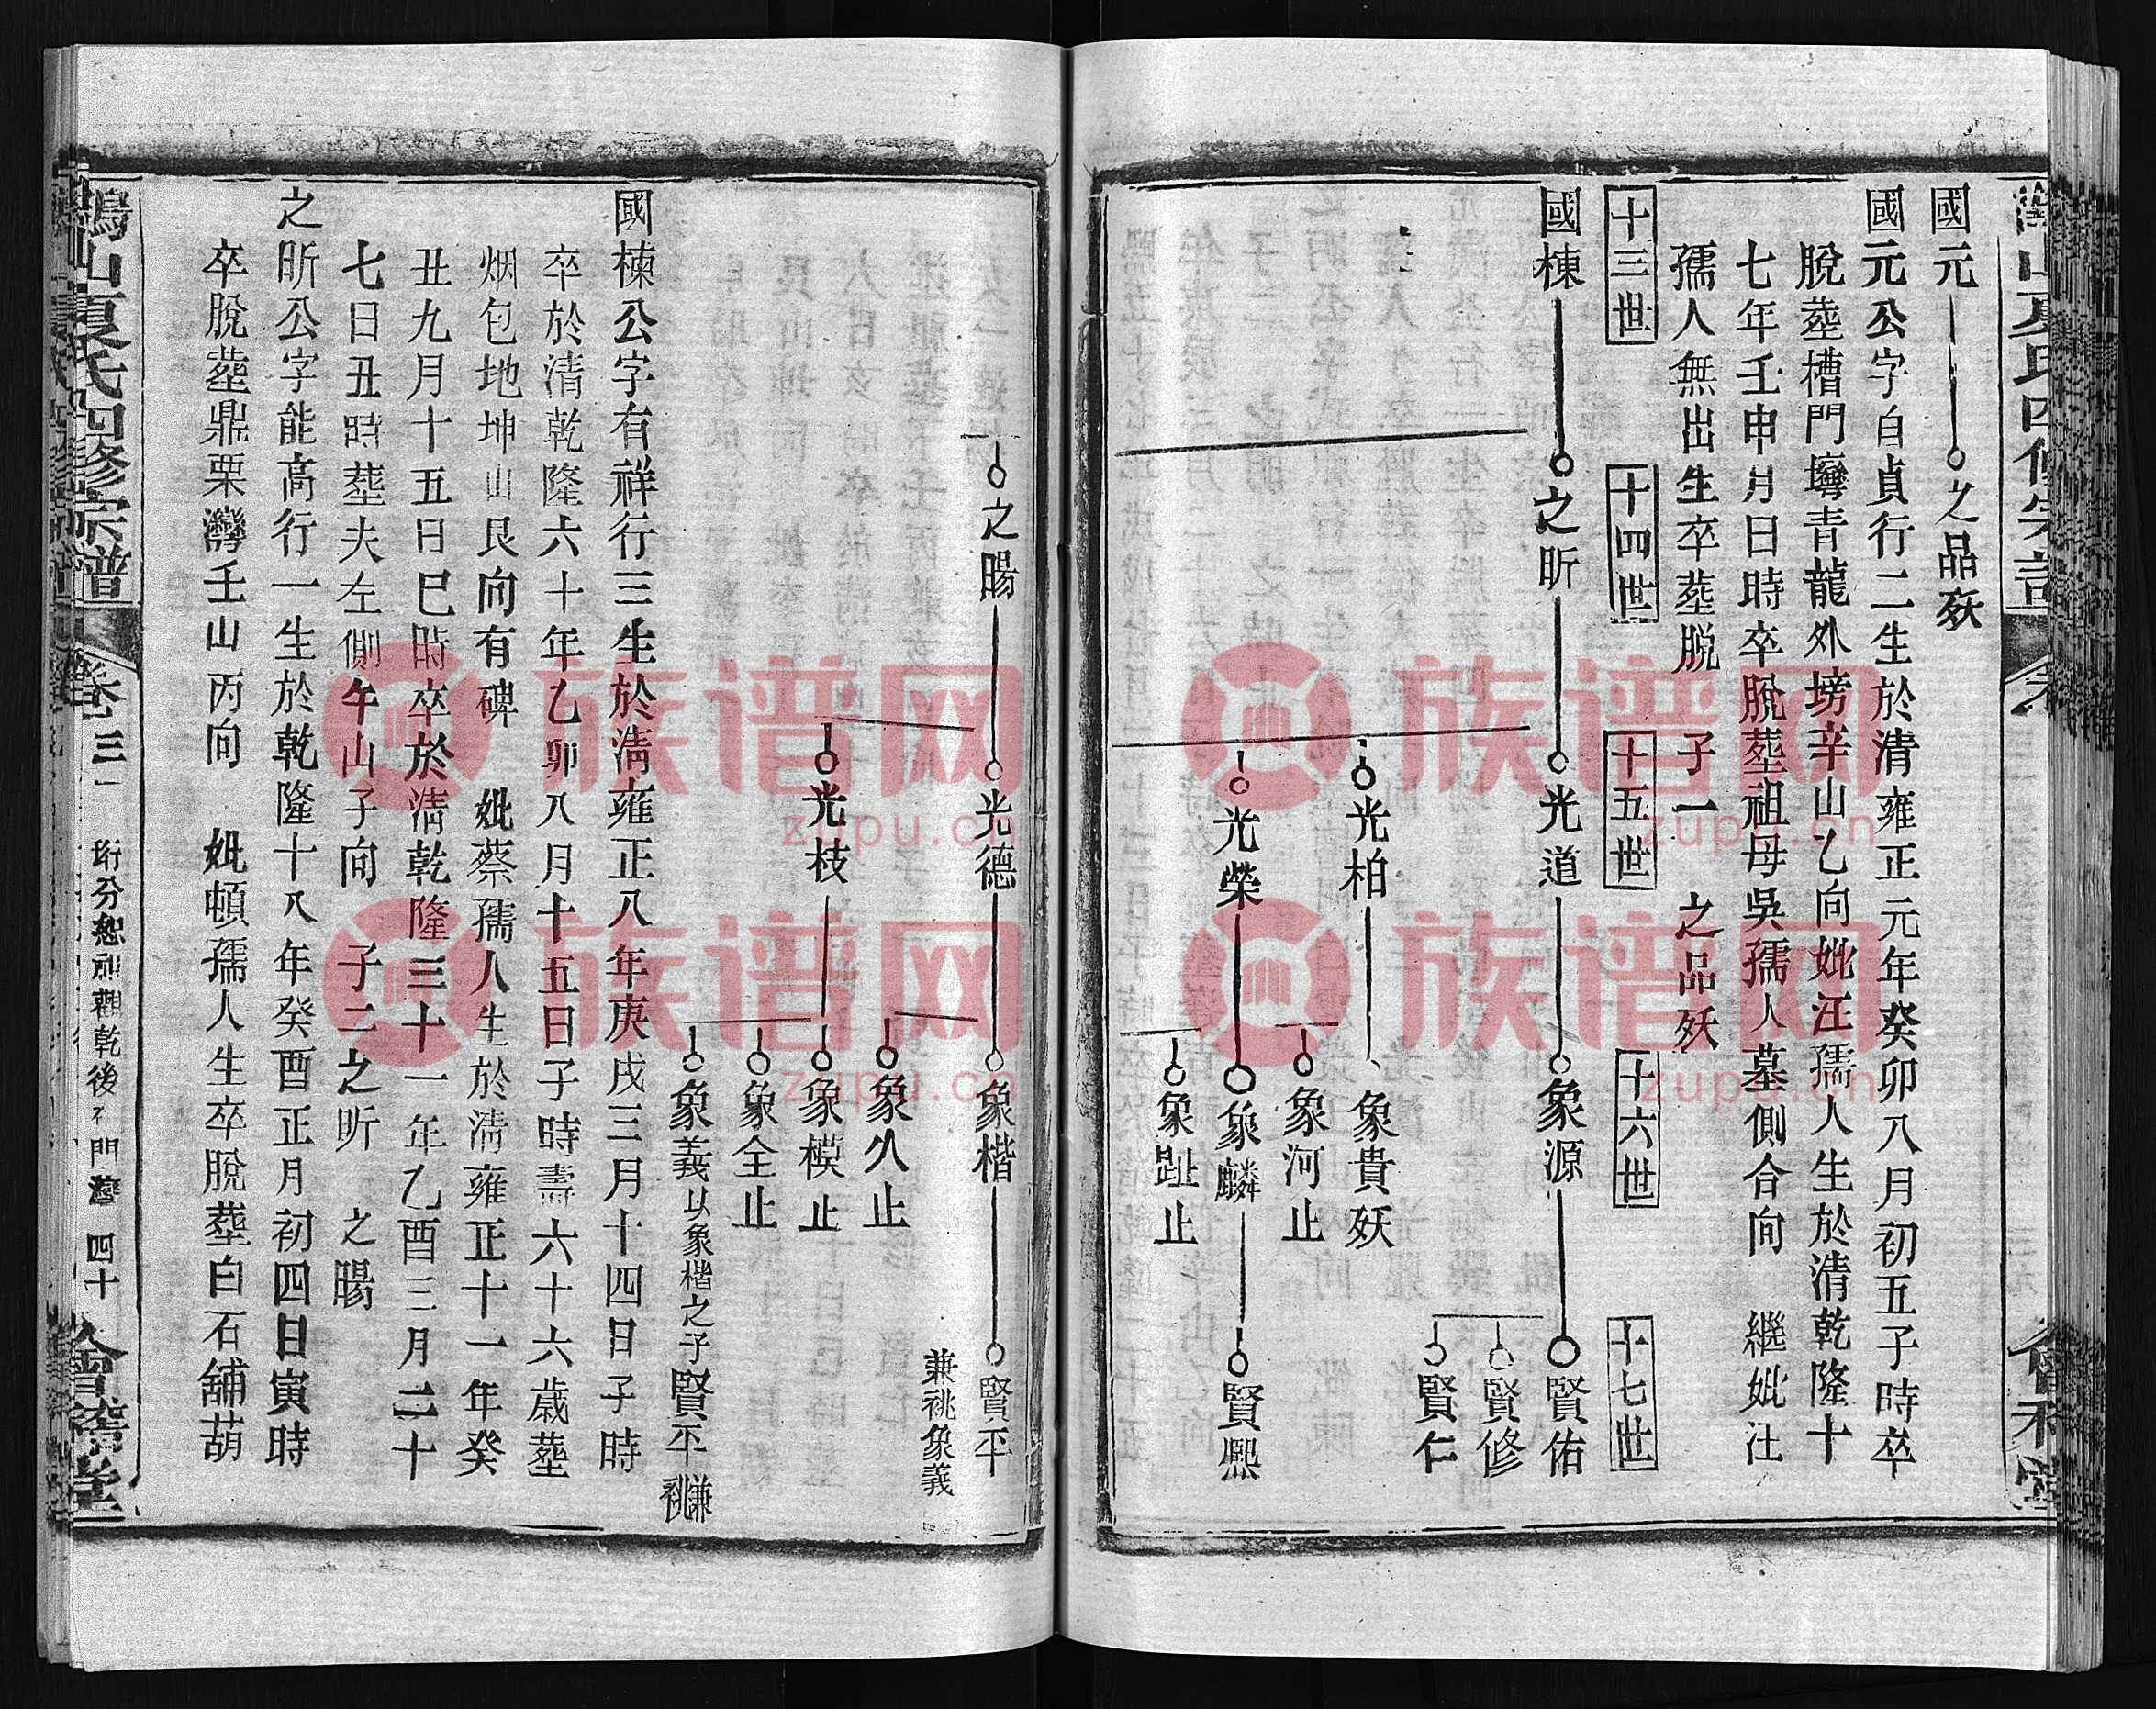 國元 之品殀
國元公字自貞行二生於清雍正元年癸卯八月初五子時卒
脫塟槽門塆青龍外塝辛山乙向妣汪孺人生於清乾隆十
七年壬申月日時卒脫塟祖母吳孺人墓側合向 繼妣汪
孺人無出生卒塟脫 子一 之品殀
十三世 十四世 十五世 十六世 十七世
國棟 之昕 光道 象源 賢佑
賢修
賢仁
光柏 象貴殀
象河止
光榮 象麟 賢熙
象趾止
之暘 光德 象楷 賢平
兼祧象義
象久止
光枝 象模止
象全止
象義以象楷之子賢平兼祧
國棟公字有祥行三生於清雍正八年庚戌三月十四日子時
卒於清乾隆六十年乙卯八月十五日子時壽六十六歲塟
烟包地坤山艮向有碑 妣蔡孺人生於清雍正十一年癸
丑九月十五日巳時卒於清乾隆三十一年乙酉三月二十
七日丑時塟夫左側午山子向 子二之昕 之暘
之昕公字能高行一生於乾隆十八年癸酉正月初四日寅時
卒脫塟鼎栗灣壬山丙向 妣頓孺人生卒脫塟白石舖葫
山夏氏四修宗譜 卷三 四十
族谱网
zupu.cn
族谱网
zupu.cn
族谱网
zupu.cn
族谱网
zupu.cn